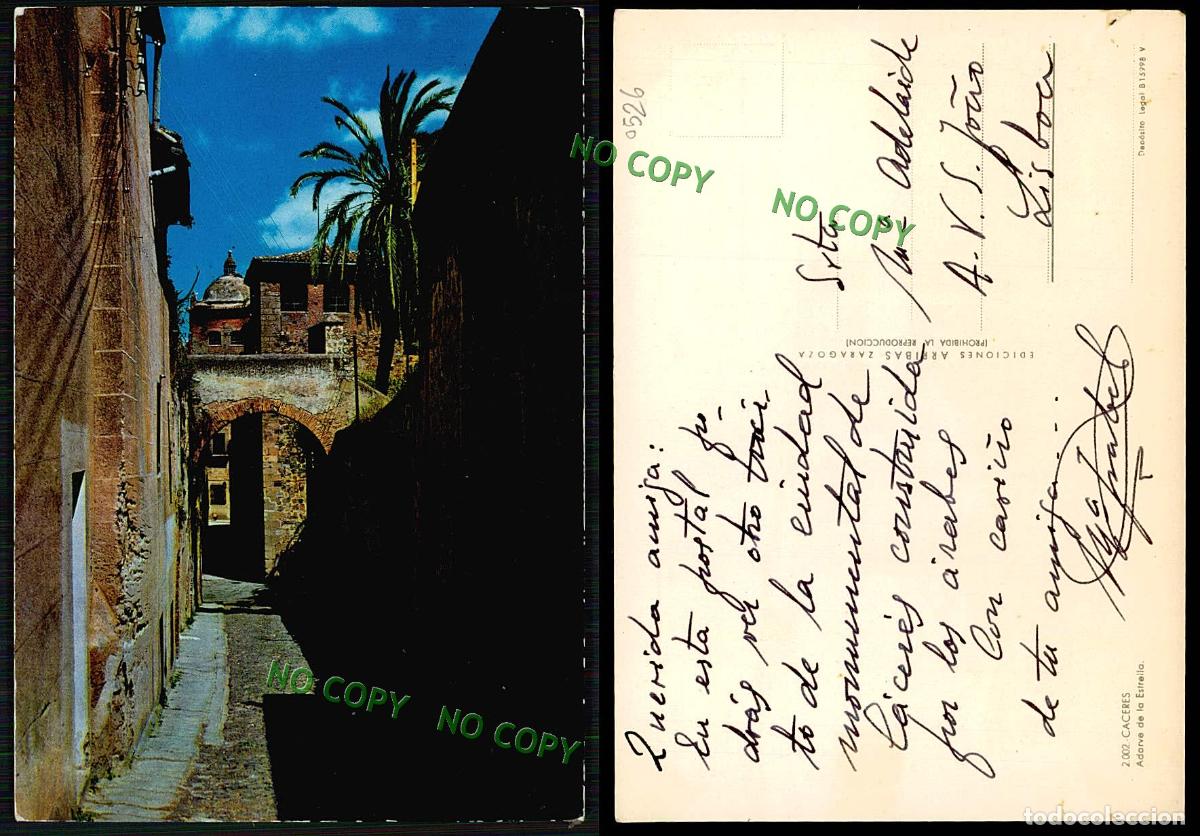 NO COPY
NO COPY
NO COPY
NO COPY
0526
Querida amiga:
En esta postal po-
drás ver otro trozi-
to de la ciudad
monumental de
Cáceres construida
por los árabes
Con cariño
de tu amiga...
Mª Isabel
Srta
Mª Adelaide
A.V.S. João
Lisboa
EDICIONES ARRIBAS ZARAGOZA
(PROHIBIDA LA REPRODUCCION)
Depósito Legal B 15998 V
2.002.-CACERES
Adarve de la Estrella.
todocoleccion.net